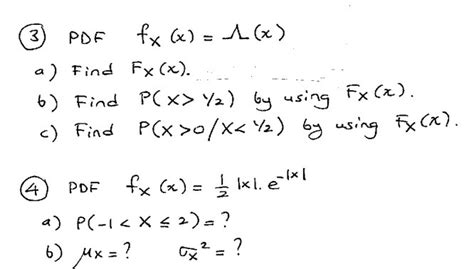 ③ PDF f_X(x) = Λ(x)
a) Find F_X(x).
b) Find P(X > 1/2) by using F_X(x).
c) Find P(X>0/X<1/2) by using F_X(x).
④ PDF f_X(x) = 1/2 |x|. e^-|x|
a) P(-1 < X ≤ 2) = ?
b) μ_X = ? σ_X² = ?